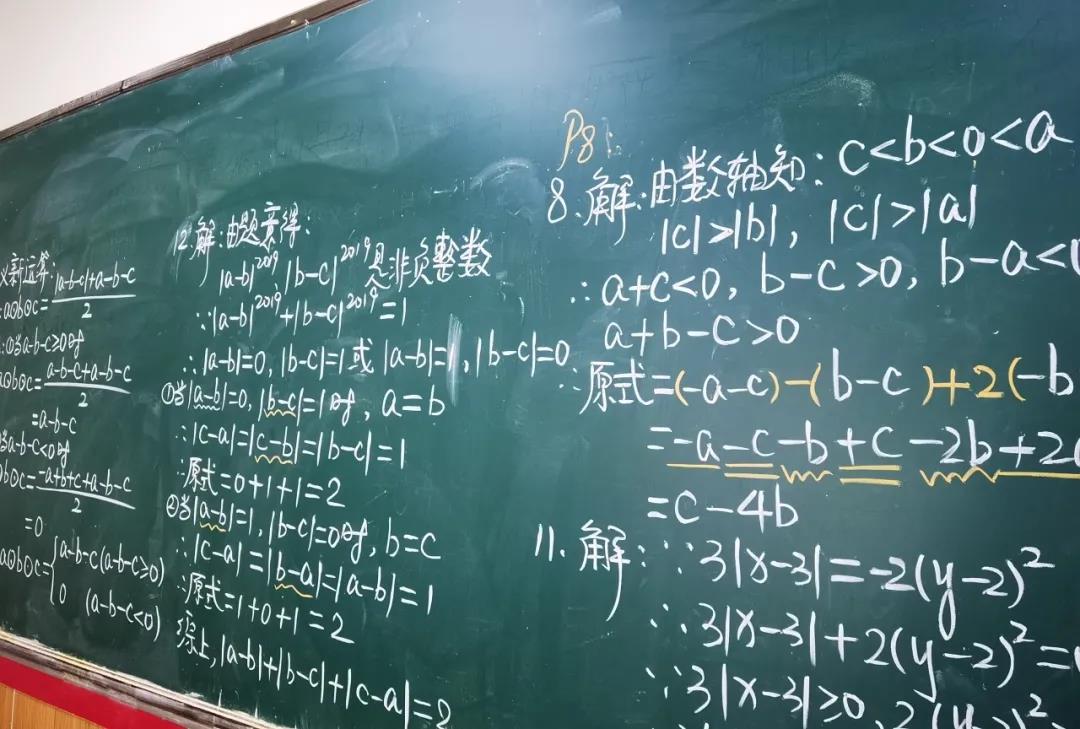 义新运算:
a⊙b⊙c=|a-b-c|+a-b-c/2
①当a-b-c≥0时
a⊙b⊙c=a-b-c+a-b-c/2
=a-b-c
当a-b-c<0时
b⊙c=-a+b+c+a-b-c/2
=0
a⊙b⊙c={a-b-c(a-b-c≥0)
0 (a-b-c<0)
12.解:由题意得:
|a-b|²⁰¹⁹,|b-c|²⁰¹⁹是非负整数
∵|a-b|²⁰¹⁹+|b-c|²⁰¹⁹=1
∴|a-b|=0,|b-c|=1或|a-b|=1,|b-c|=0
①当|a-b|=0,|b-c|=1时,a=b
∴|c-a|=|c-b|=|b-c|=1
∴原式=0+1+1=2
②当|a-b|=1,|b-c|=0时,b=c
∴|c-a|=|b-a|=|a-b|=1
∴原式=1+0+1=2
综上,|a-b|+|b-c|+|c-a|=2
P8:
8.解:由数轴知:c<b<0<a
|c|>|b|,|c|>|a|
∴a+c<0,b-c>0,b-a<0
a+b-c>0
∴原式=(-a-c)-(b-c)+2(-b
=-a-c-b+c-2b+2
=c-4b
11.解:∵3|x-3|=-2(y-2)²
∴3|x-3|+2(y-2)²=
∵3|x-3|≥0,2(y-2)²